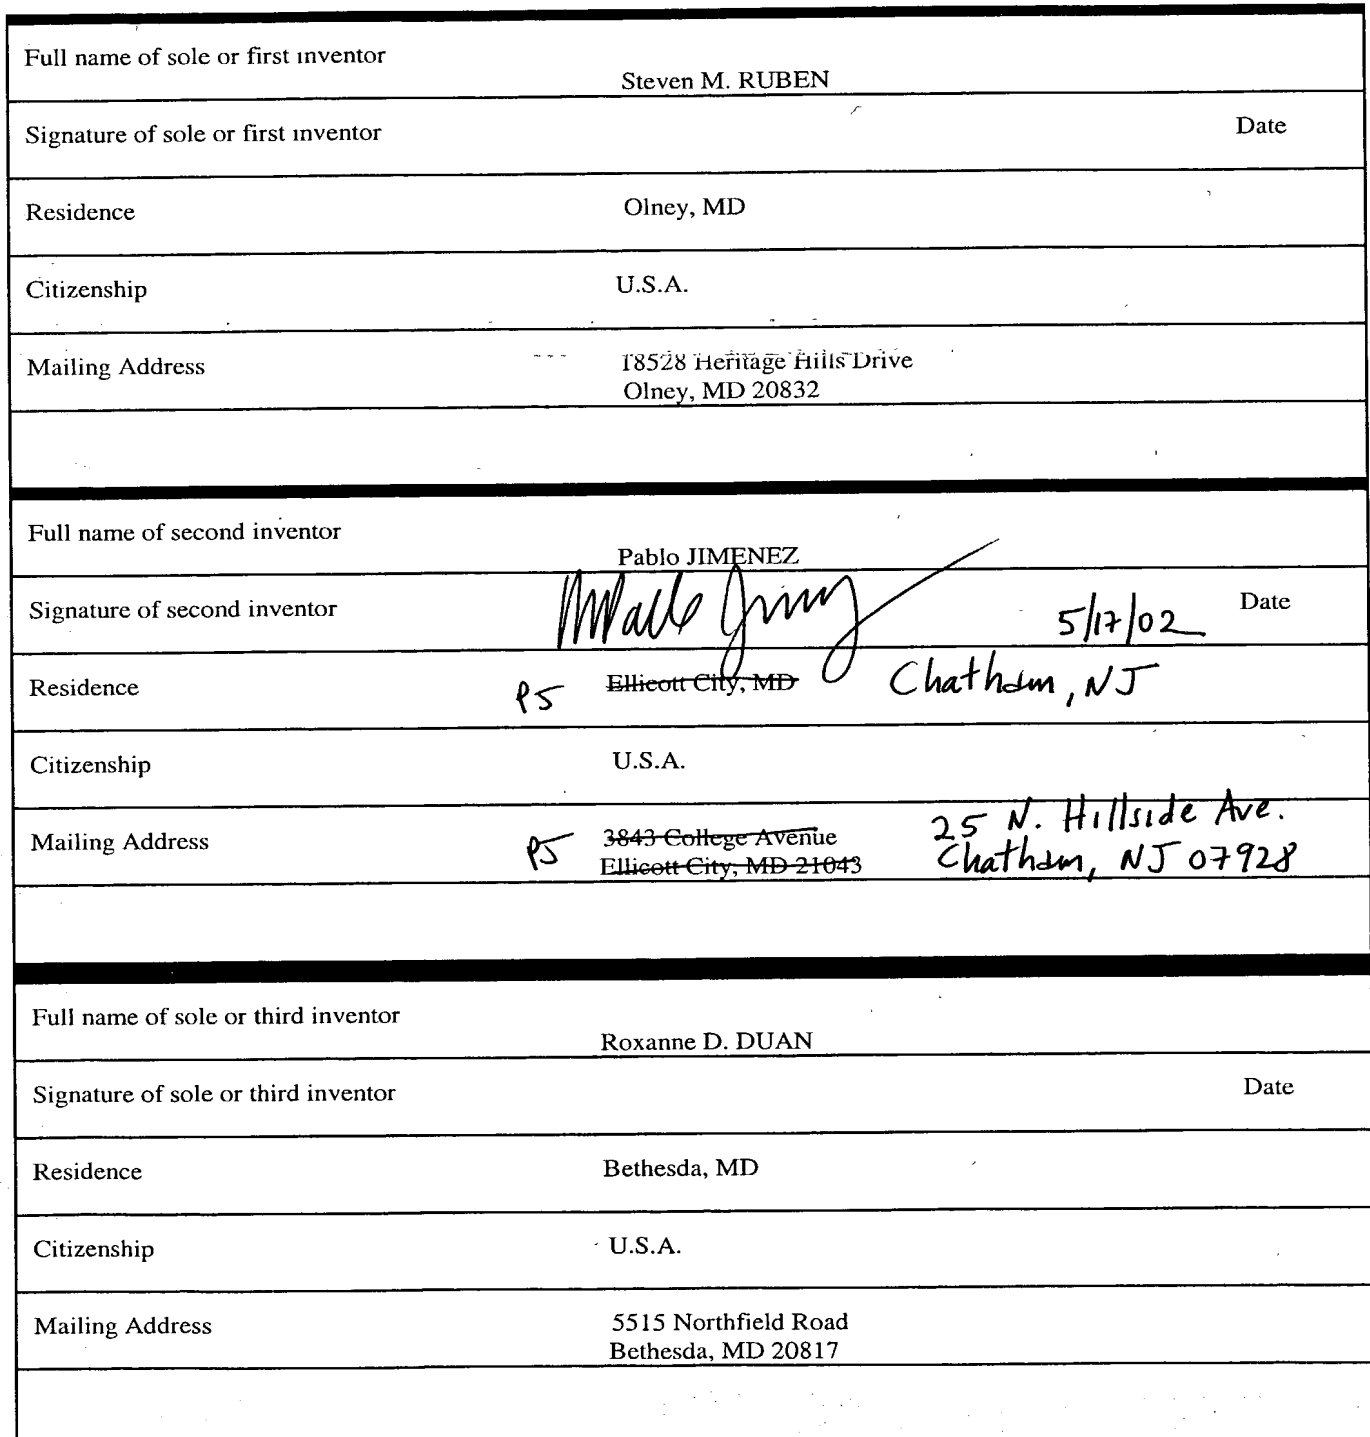 Full name of sole or first inventor
Steven M. RUBEN
Signature of sole or first inventor Date
Residence Olney, MD
Citizenship U.S.A.
Mailing Address 18528 Heritage Hills Drive
Olney, MD 20832
Full name of second inventor
Pablo JIMENEZ
Signature of second inventor 5/17/02 Date
Residence PJ Ellicott City, MD Chatham, NJ
Citizenship U.S.A.
Mailing Address PJ 3843 College Avenue 25 N. Hillside Ave.
Ellicott City, MD 21043 Chatham, NJ 07928
Full name of sole or third inventor
Roxanne D. DUAN
Signature of sole or third inventor Date
Residence Bethesda, MD
Citizenship U.S.A.
Mailing Address 5515 Northfield Road
Bethesda, MD 20817